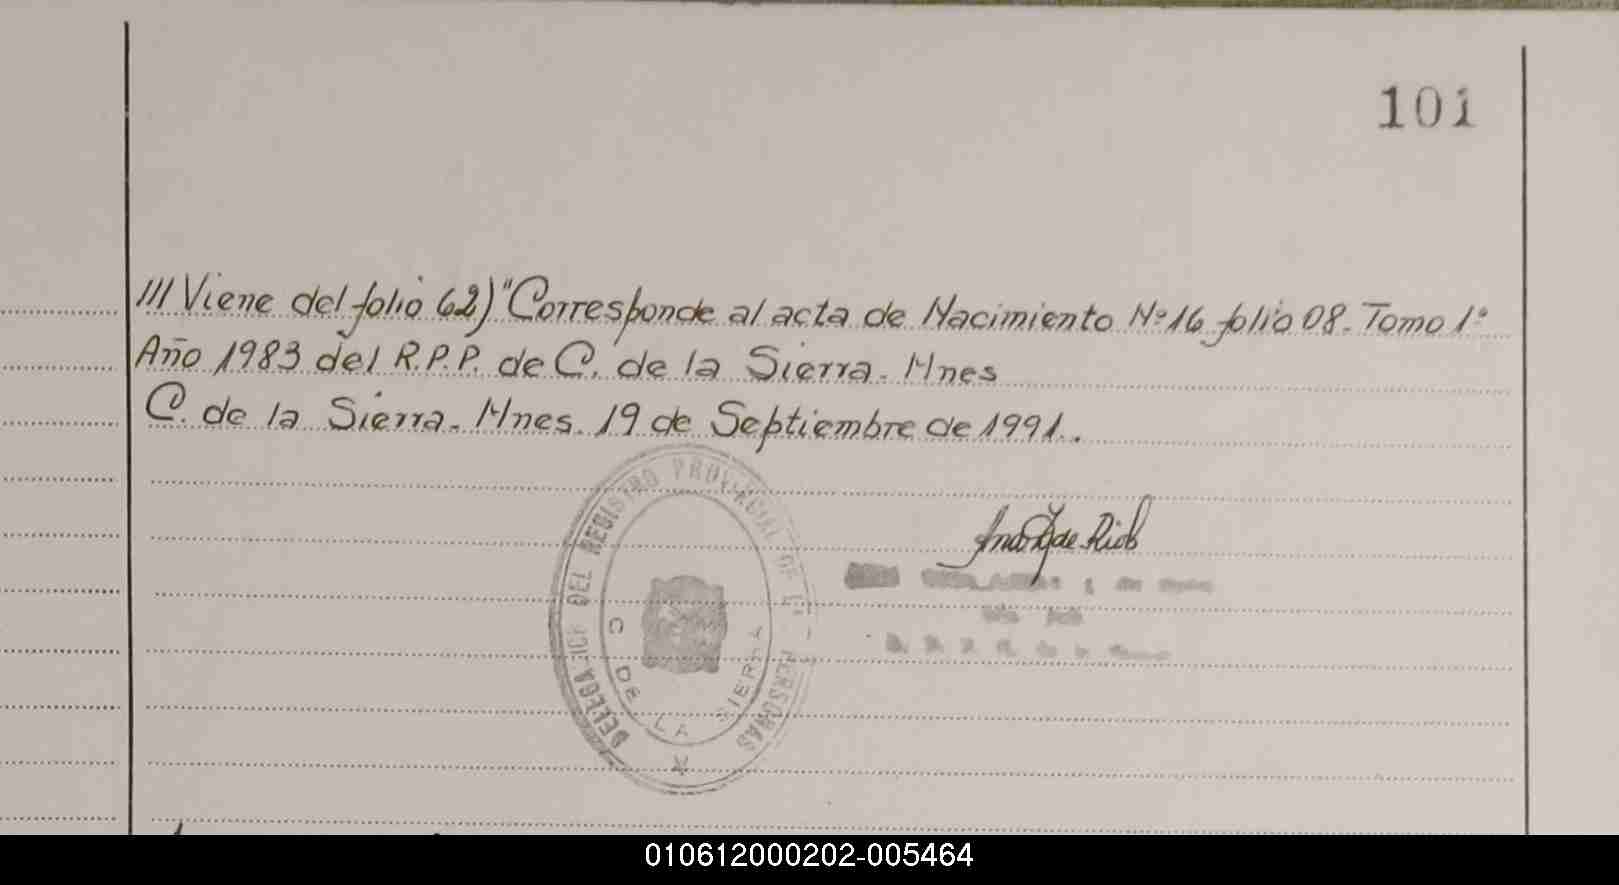 101
/// Viene del folio 62) "Corresponde al acta de Nacimiento Nº 16 folio 08. Tomo 1º
Año 1983 del R.P.P. de C. de la Sierra. Mnes
C. de la Sierra. Mnes. 19 de Septiembre de 1991.
DELEGACION DEL REGISTRO PROVINCIAL DE LAS PERSONAS
C DE LA SIERRA
de Rios
010612000202-005464